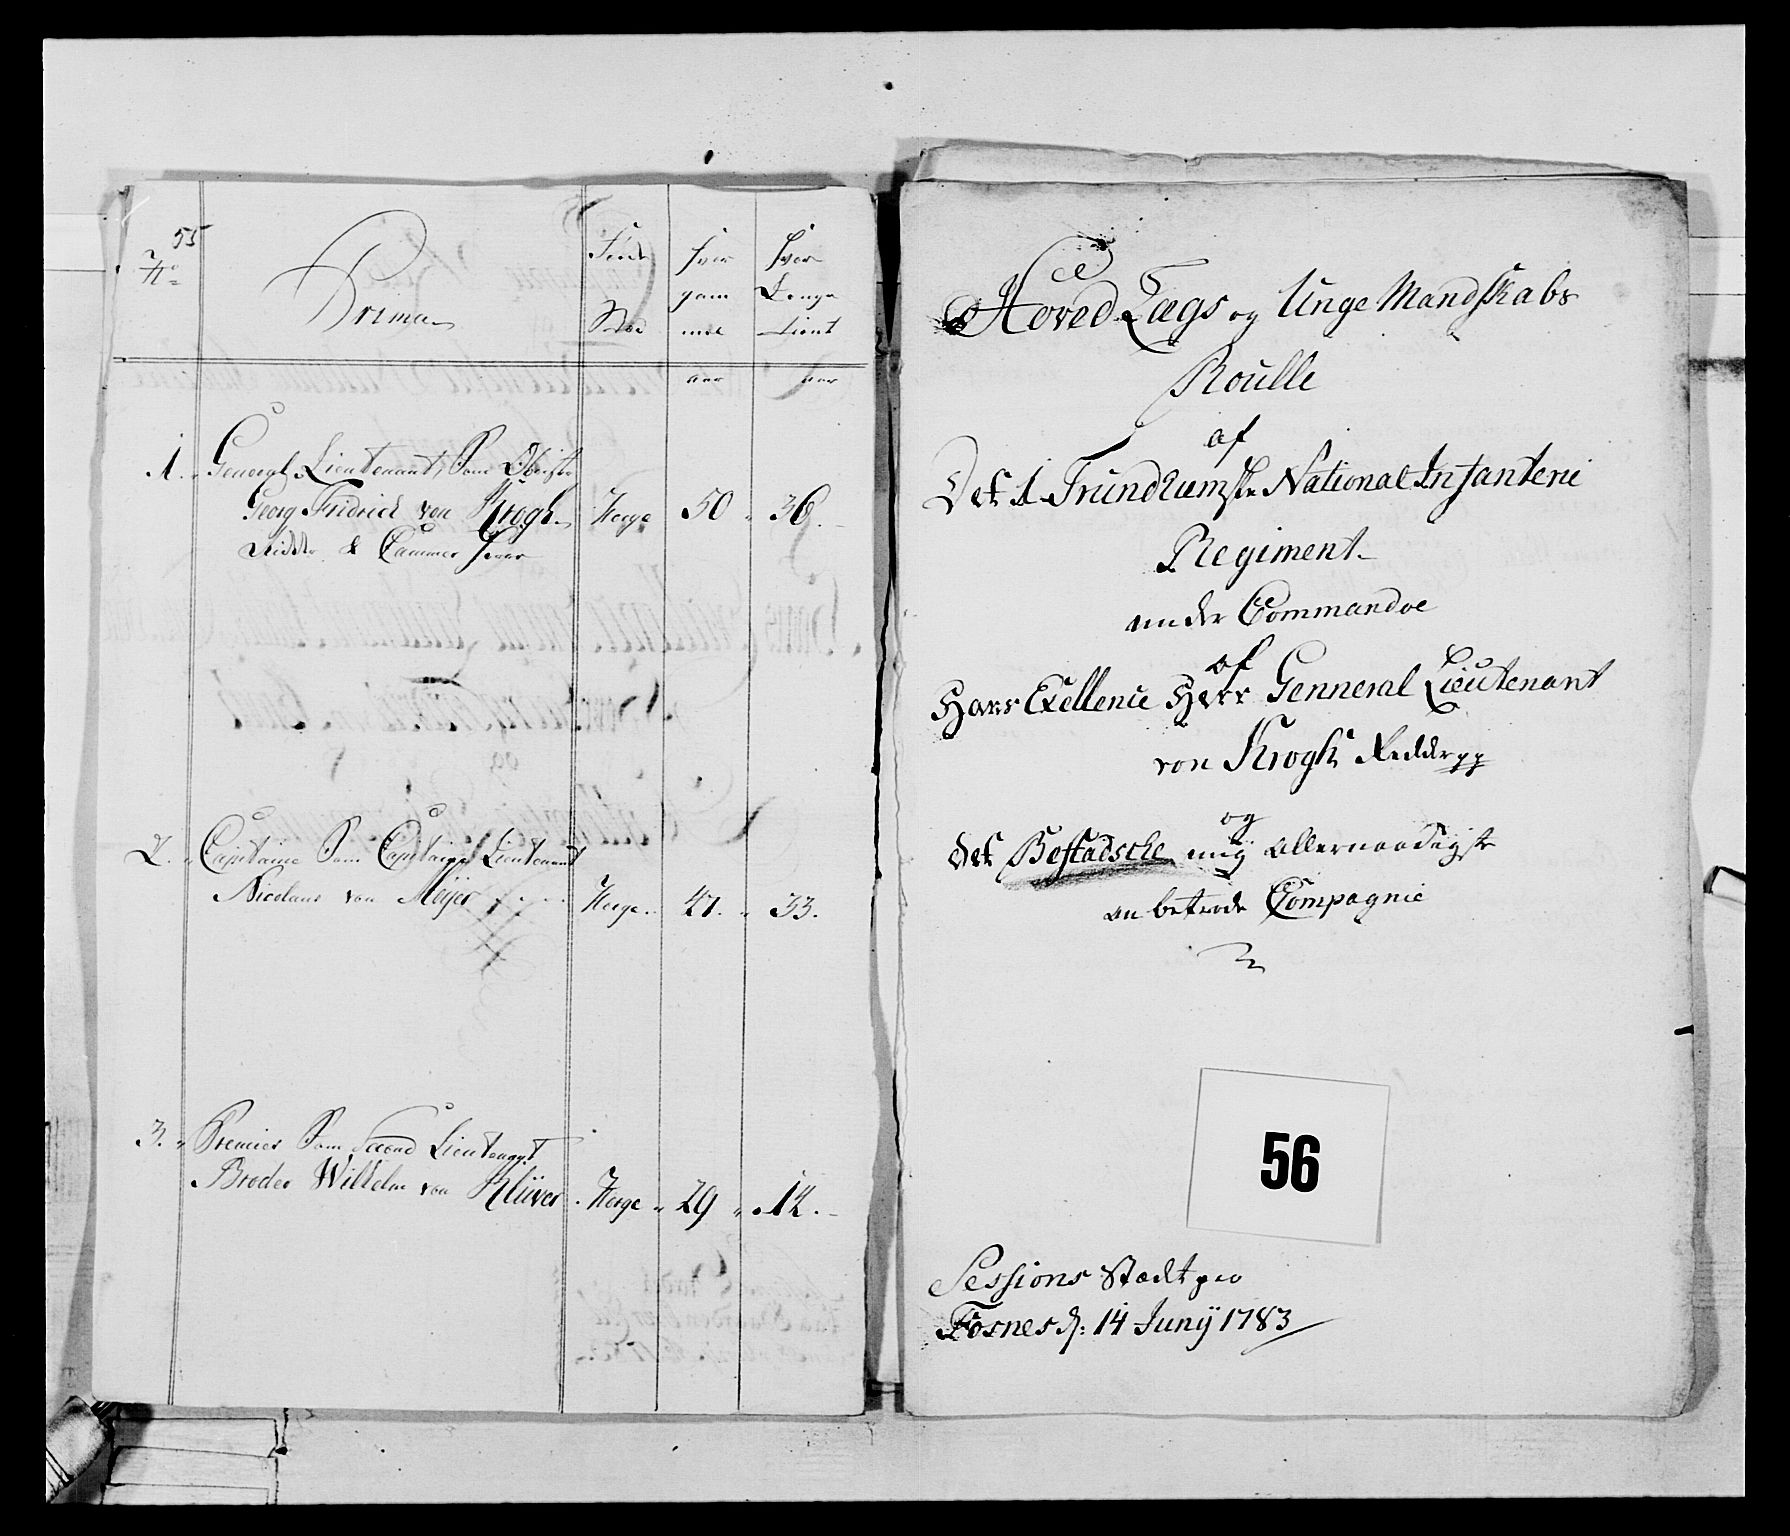 55
No
Prima
Føde
Stæd
hvor
gam
mel
hvor
Lenge
tient
aar
aar
1. General Lieutenant, Som Obrister
Georg Fridrich von Krogh
Ridder & Cammer herre
Norge 50 36.
2. Capitaine Som Capitaine Lieutenant
Nicolaus von Meijer
Norge. 47. 33.
3. Premier Som Second Lieutenant
Broder Wilhelm von Klüver
Norge 29 14.
Hoved Lægs og Unge Mandskabs
Roulle
af
Det 1 Trundhiemske National Infanterie
Regiment
under Commandoe
af
Hans Exellence Herr Genneral Lieutenant
von Krogh Ridder pp
og
det Bestadsche mig allernaadigst
an betroede Compagnie
56
Sessions Stædt paa
Fosnes d: 14 Junij 1783